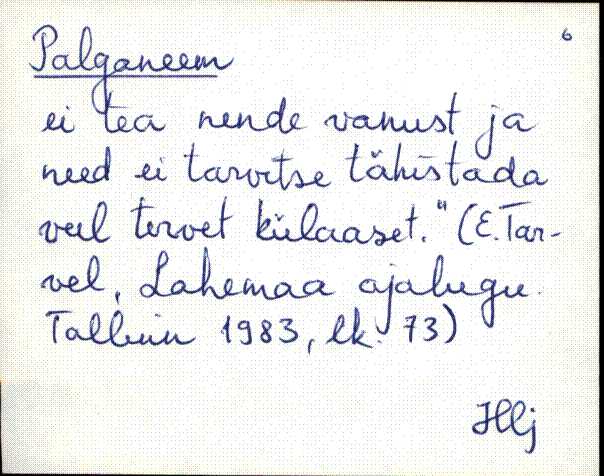 6
Palganeem
ei tea nende vanust ja
need ei tarvitse tähistada
veel tervet külaaset." (E. Tar-
vel, Lahemaa ajalugu.
Tallinn 1983, lk. 73)
Hlj